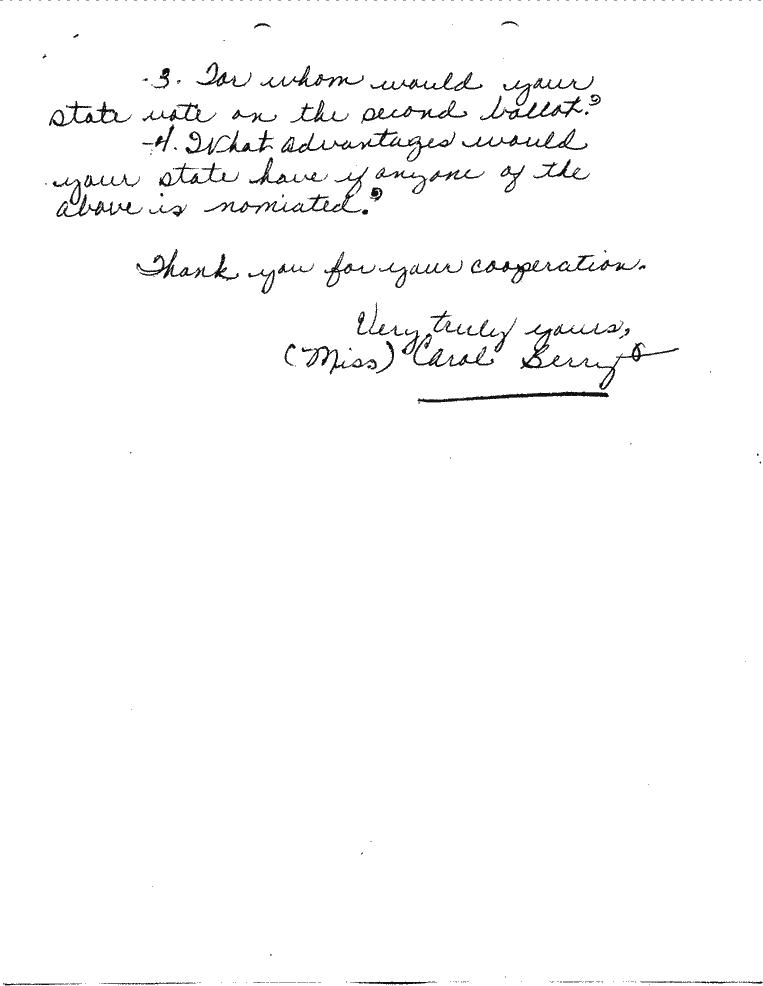 3. For whom would your
state vote on the second ballot?
4. What advantages would
your state have if anyone of the
above is nomiated?
Thank you for your cooperation.
Very truly yours,
(Miss) Carol Berry